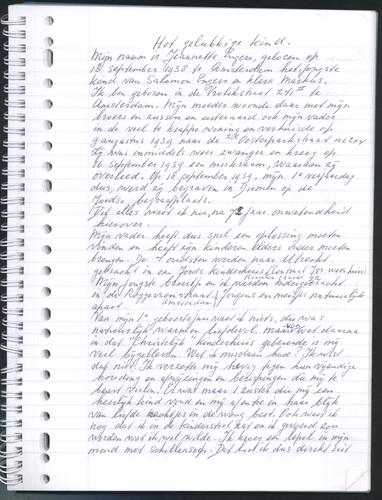 Het gelukkige kind.
Mijn naam is Jeannette Engers, geboren op
18 september 1938 te Amsterdam het jongste
kind van Salomon Engers en Klara Markus.
Ik ben geboren in de 241 II te
Amsterdam. Mijn moeder woonde daar met mijn
broers en zussen en uiteraard ook mijn vader
in de veel te krappe woning en verhuisde op
9 augustus 1939 naar de Oosterparkstraat
Zij was inmiddels weer zwanger en kreeg op
16 september 1939 een miskraam, waaraan zij
overleed. Op 18 september 1939, mijn 1e verjaardag
dus, werd zij begraven in Diemen op de
Joodse begraafplaats.
Dit alles weet ik nu, na jaar onwetendheid
hierover.
Mijn vader heeft dus snel een oplossing moeten
vinden en heeft zijn kinderen elders onder moeten
brengen. De oudsten werden naar Utrecht
gebracht in een Joods kinderhuis
Mijn jongste broertje en ik werden ondergebracht
in de Amsterdam, jongens en meisjes natuurlijk
apart.
Van mijn 1e geboortejaar weet ik niets, dus was
natuurlijk warm en liefdevol. Maar wat daarna
in dat "Christelijk" kinderhuis gebeurde is mij
veel bijgebleven. Wat ik misdaan had? Ik wist
dat niet. Ik verzette mij hevig tegen hun vijandige
houding en afwijzingen en bestraffingen die mij te
beurt vielen. Er was maar 1 zuster die mij een
heerlijk kind vond en mij af en toe in haar blijk
van liefde zachtjes in de wang beet. Ook weet ik
nog dat ik in de kinderstoel zat en ik gevoerd zou
worden wat ik niet wilde. Ik kreeg een lepel in mijn
mond met Dat heb ik dus direct